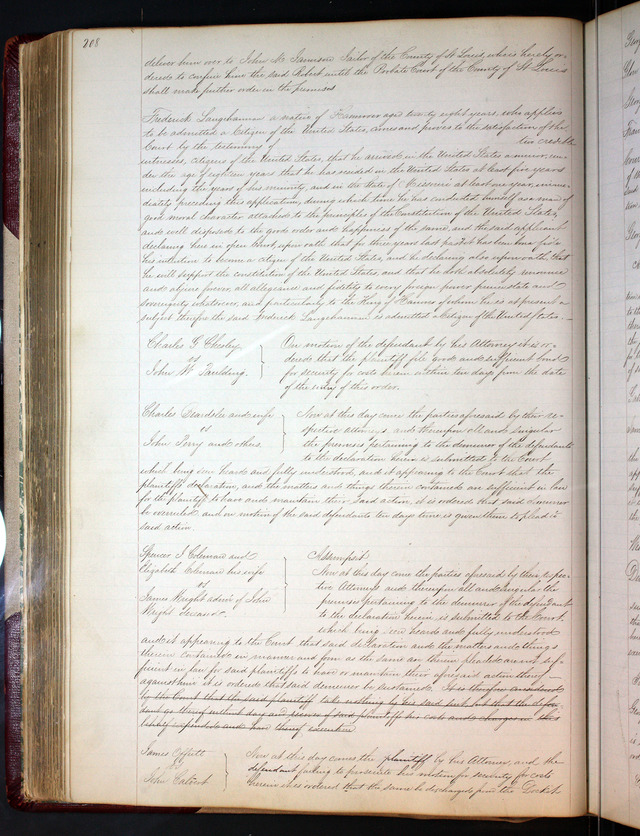 208
deliver him over to John M. Jamison Jailor of the County of St Louis, who is hereby or-
dered to confine him the said Robert until the Probate Court of the County of St Louis
shall make further order in the premises
Frederick Langehannan a native of Hannover aged twenty eight years, who applies
to be admitted a Citizen of the United States, comes and proves to the satisfaction of the
Court by the testimony of two credible
witnesses, citizens of the United States, that he arrived in the United States a minor, un-
der the age of eighteen years that he has resided in the United States at least five years
including the years of his minority, and in the State of Missouri at least one year, imme-
diately preceding this application, during which time he has conducted himself as a man of
good moral character attached to the principles of the Constitution of the United States,
and well disposed to the good order and happiness of the same, and the said applicant
declaring here in open Court, upon oath that for three years last past it has been bona fide
his intention to become a citizen of the United States, and he declaring also upon oath that
he will support the constitution of the United States, and that he doth absolutely renounce
and abjure forever, all allegiance and fidelity to every foreign power prince state and
sovereignty whatsoever, and particularly to the King of Hannover of whom he is at present a
subject therefore the said Frederick Langehannan is admitted a Citizen of the United States. —
Charles G
vs
John W Paulding.
On motion of the defendant by his Attorney it is or-
dered that the plaintiff file good and sufficient bond
for security for costs herein within ten days from the date
of the entry of this order.
Charles Deardslee and wife
vs
John Perry and others
Now at this day come the parties aforesaid by their re-
spective attorneys, and thereupon all and singular
the premises pertaining to the demurrer of the defendants
to the declaration herein is submitted to the Court
which being seen heard and fully understood, and it appearing to the Court that the
plaintiffs declaration, and the matters and things therein contained are sufficient in law
for the plaintiff to have and maintain their said action, it is ordered that said demurrer
be overruled and on motion of the said defendants ten days time is given them to plead in
said action.
Spencer J Coleman and
Elizabeth Coleman his wife
vs
James Wright admr of John
Wright deceased.
Assumpsit.
Now at this day come the parties aforesaid by their respec-
tive Attorneys and thereupon all and singular the
premises pertaining to the demurrer of the defendant
to the declaration herein is submitted to the Court,
which being seen heard and fully understood
and it appearing to the Court that said declaration and the matters and things
therein contained in manner and form as the same are therein pleaded are not suf-
ficient in law for said plaintiffs to have or maintain their aforesaid action thereof
against him it is ordered that said demurrer be sustained. It is therefore considered
by the Court that the said plaintiff take nothing by his said suit but that the defen-
dant go thereof without day and recover of said plaintiff his costs and charges in this
behalf expended and have thereof execution
James Offutt
vs
John Calvert
Now at this day comes the plaintiff by his Attorney, and the
defendant failing to prosecute his motion for security for costs
herein it is ordered that the same be discharged from the Docket.